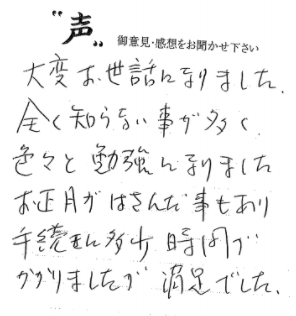 "声"
御意見・感想をお聞かせ下さい
大変お世話になりました.
全く知らない事が多く
色々と勉強になりました
お正月がはさんだ事もあり
手続きに多少時間が
かかりましたが 満足でした.